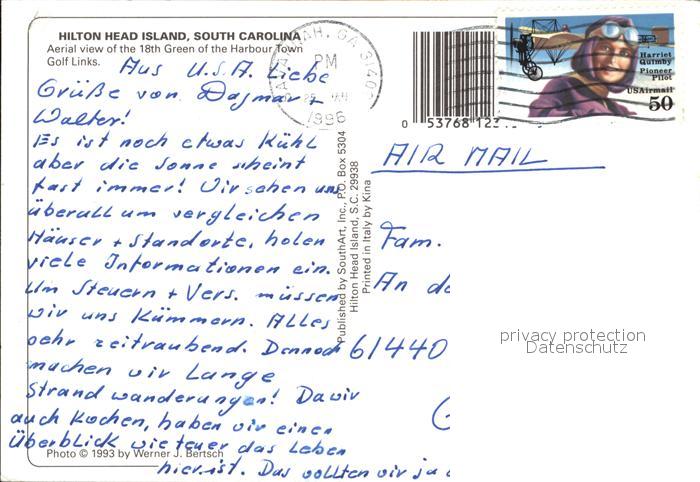 HILTON HEAD ISLAND, SOUTH CAROLINA
Aerial view of the 18th Green of the Harbour Town
Golf Links.
Aus U.S.A. Liebe
Grüße von Dagmar +
Walter!
Es ist noch etwas Kühl
aber die Sonne scheint
fast immer! Wir sehen uns
überall um vergleichen
Häuser + Standorte, holen
viele Informationen ein.
Um Steuern + Vers. müssen
wir uns Kümmern. Alles
sehr zeitraubend. Dennoch
machen wir Lange
Strand wanderungen! Da wir
auch Kochen, haben wir einen
Überblick wie teuer das Leben
hier ist. Das wollten wir ja
Photo © 1993 by Werner J. Bertsch
Published by SouthArt, Inc., P.O. Box 5304
Hilton Head Island, S.C. 29938
Printed in Italy by Kina
GA 3140
PM
1996
0 53768 123
Harriet
Quimby
Pioneer
Pilot
USAirmail
50
AIR MAIL
Fam.
An d
61440
privacy protection
Datenschutz